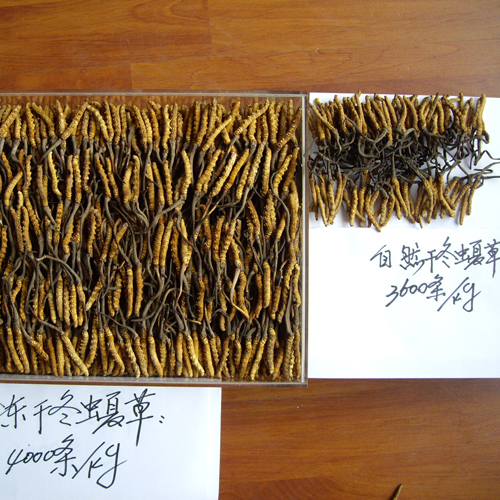 自然干冬虫夏草
3600条/kg
冻干冬虫夏草：
4000条/kg